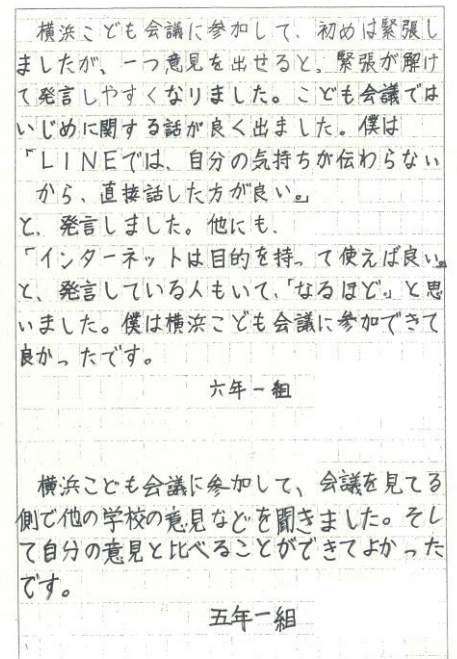 横浜こども会議に参加して、初めは緊張し
ましたが、一つ意見を出せると、緊張が解け
て発言しやすくなりました。こども会議では
いじめに関する話が良く出ました。僕は
「LINEでは、自分の気持ちが伝わらない
から、直接話した方が良い。」
と、発言しました。他にも、
「インターネットは目的を持って使えば良い。」
と、発言している人もいて、「なるほど。」と思
いました。僕は横浜こども会議に参加できて
良かったです。
六年一組
横浜こども会議に参加して、会議を見てる
側で他の学校の意見などを聞きました。そし
て自分の意見と比べることができてよかった
です。
五年一組